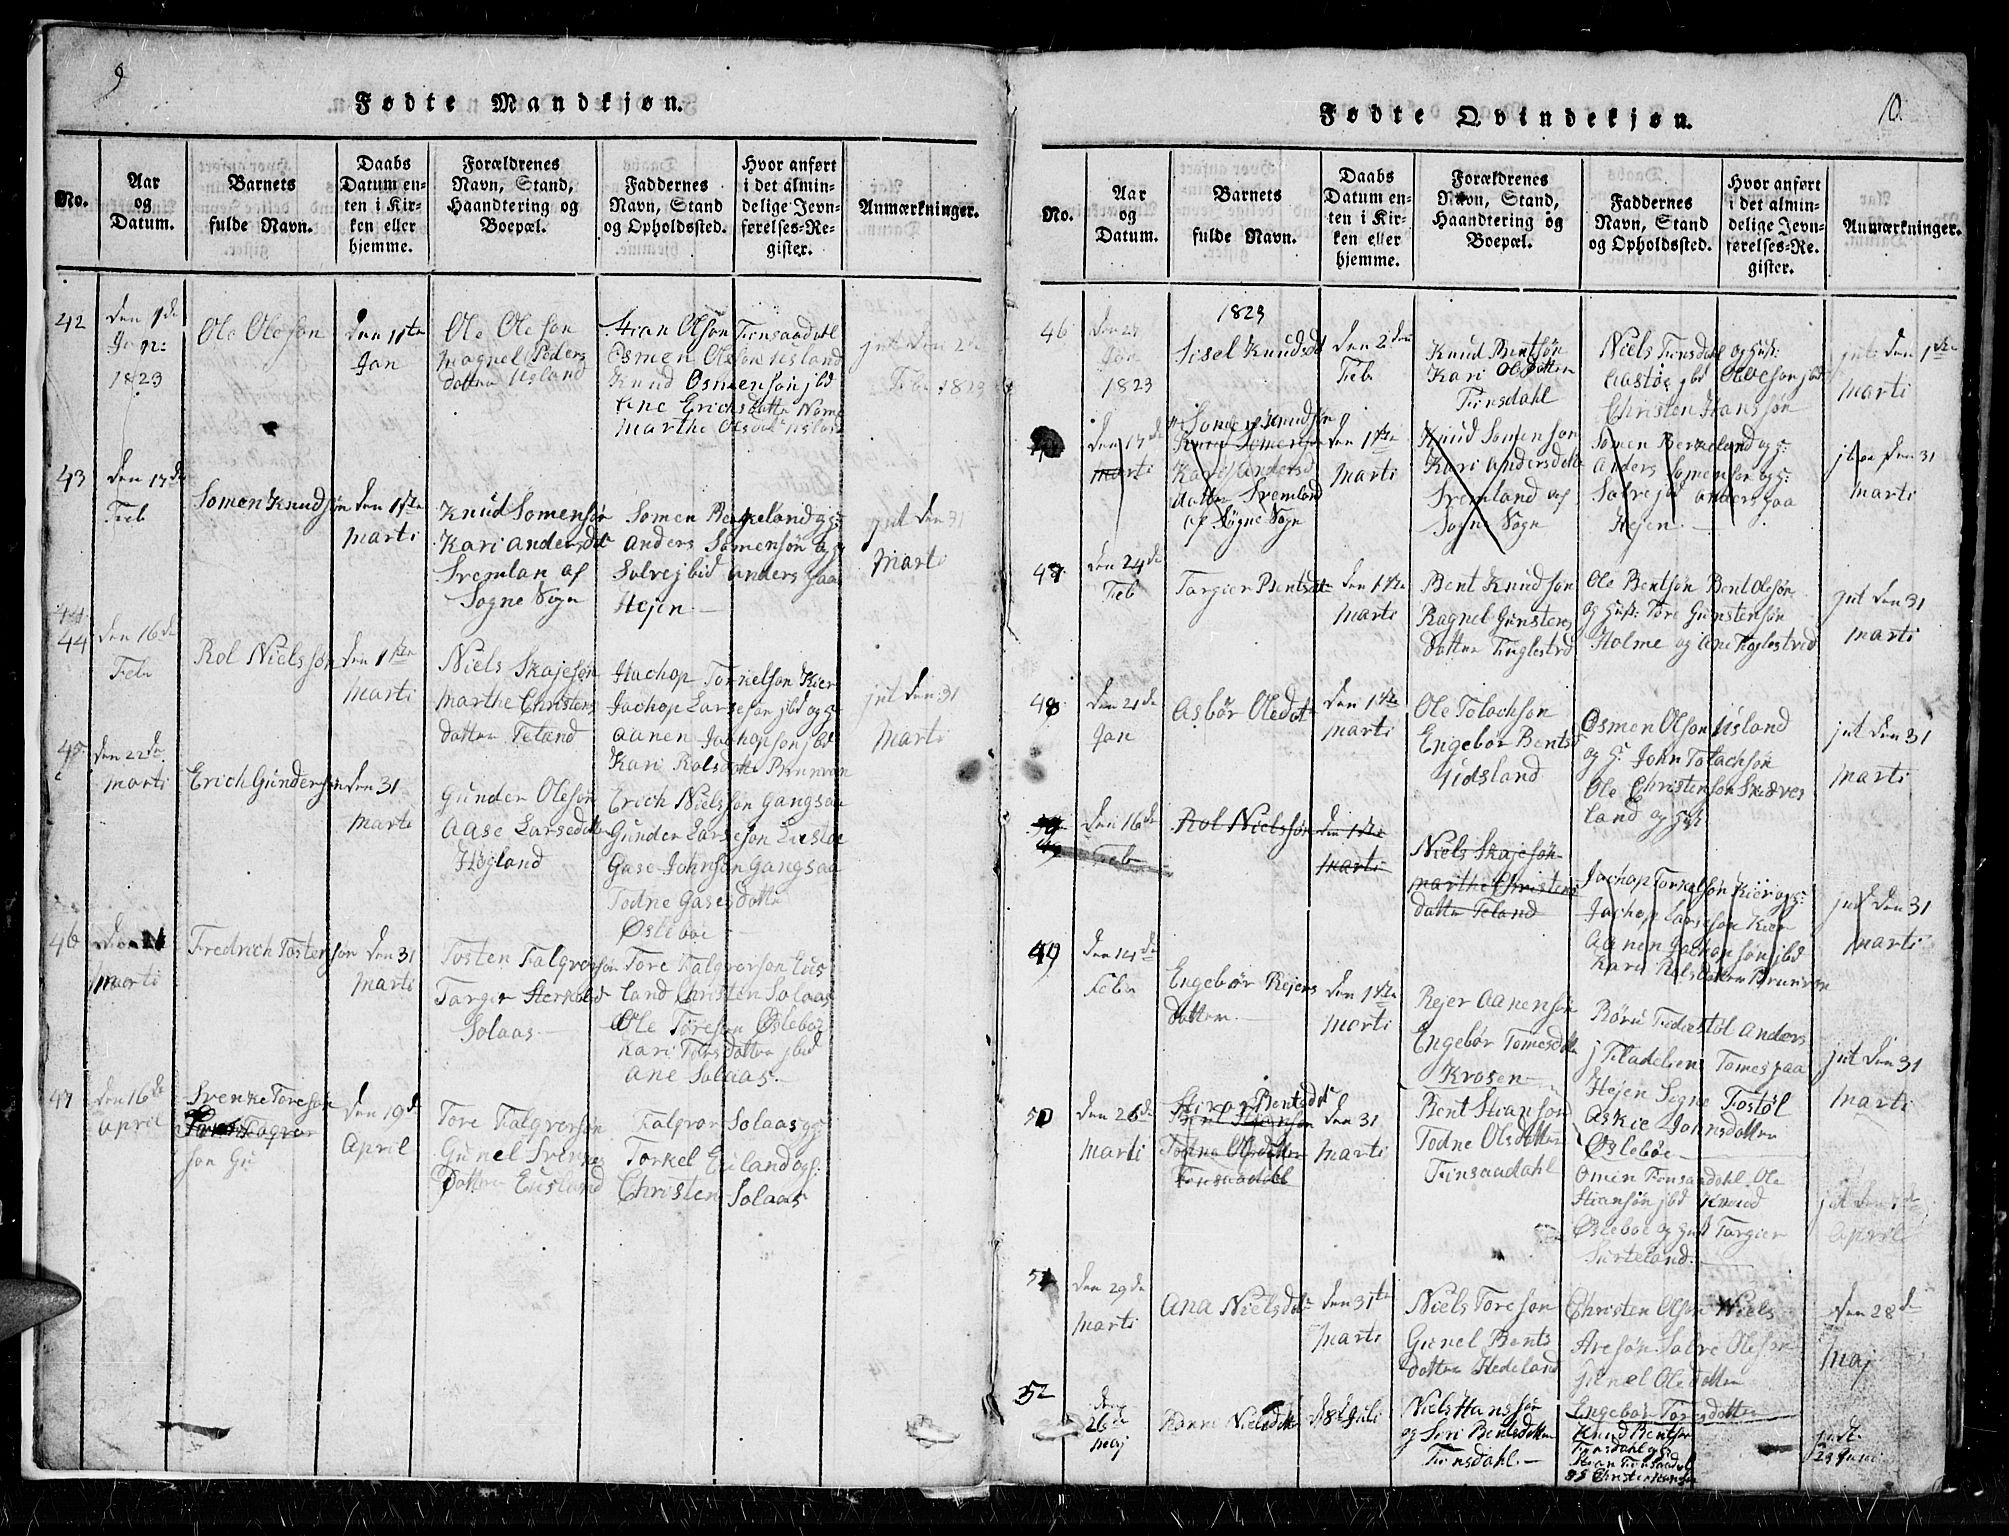 9
Fødte Mandkjøn.
No.
Aar
og
Datum.
Barnets
fulde Navn.
Daabs
Datum en-
ten i Kir-
ken eller
hjemme.
Forældrenes
Navn, Stand,
Haandtering og
Boepæl.
Faddernes
Navn, Stand
og Opholdssted.
Hvor anført
i det almin-
delige Jevn-
førelses-Re-
gister.
Anmærkninger.
42
den 1de
Jan:
1823
Ole Oleson
den 11te
Jan
Ole Oleson
Magnel Peders
datter Usland
Stian Olson Finsaadahl
Osmen Oleson Usland
Knud Osmensøn jbd
Ane Erichsdatter
Marthe Olsdat Usland
jnt den 2de
Feb 1823
43
den 17de
Feb
Somen Knudsøn
den 1ste
Marti
Knud Somensøn
Kari Andersdat
Sremlan af
Sogne Sogn
Somen Berkeland og g:
Anders Somensøn og g
Solvej jbid Anders Haa
Hejen
jnt den 31
Marti
44
den 16de
Feb
Rol Nielssøn
den 1ste
Marti
Niels Skajesøn
Marthe Christens
datter Teland
Jachop Torkelson Kier
Jachop Larseson jbd og g:
Aanen Jachopson jbd
Kari Rolsdatte Brunvan
jnt den 31
Marti
45
den 22de
Marti
Erich Gunderson
den 31
Marti
Gunder Oleson
Aase Larsedatter
Høgland
Erich Nielssøn Gangsaa
Gunder Larseson
Gase Johnsøn Gangsaa
Todne Gasesdatter
Osleboe
46
Marti
Fredrich Tosterson
den 31
Marti
Tosten Falgversøn
Targier
Solaas
Tore Falgverson Eus
land Christen Solaas
Ole Toreson Osleboe
Kari Torsdatter jbid
Ane Solaas
47
den 16de
April
Svenke Toreson
son Gu
den 19de
April
Tore Falgverson
Gunel Svenkes
Datter Eusland
Falgvor Solaas og g:
Torkel Euland og g:
Christen Solaas
10
Fødte Qvindekjøn.
No.
Aar
og
Datum.
Barnets
fulde Navn.
Daabs
Datum en-
ten i Kir-
ken eller
hjemme.
Forældrenes
Navn, Stand,
Haandtering og
Boepæl.
Faddernes
Navn, Stand
og Opholdssted.
Hvor anført
i det almin-
delige Jevn-
førelses-Re-
gister.
Anmærkninger.
1823
46
Jan
1823
Sisel Knudsdat
den 2den
Feb
Knud Bentsøn
Kari Olsdatter
Finsdahl
Niels Finsdahl og Hust:
Aastøe jbd Oleson jbd
Christen Hanssøn
jnt den 1ste
Marti
den 17de
Marti
Somen Knudsøn
Kari Anders
datter Sremland
af Søgne Sogn
den 1ste
Marti
Knud Somenson
Kari Andersdatt
Sremland af
Sogne Sogn
Somen Berkeland og g:
Anders Somensøn og g:
Solvej jbd Anders Haa
Hejen
den 31
Marti
47
den 24de
Feb
Targier Bentsdat
den 1ste
Marti
Bent Knudson
Ragnel Gunstens
datter Tinglestvd
Ole Bentsøn Bent Olesøn
og Hust: Tore Gunstensøn
Holme og Ane
jnt den 31
Marti
48
den 21de
Jan
Asbør Olsdat
den 1ste
Marti
Ole Tolachson
Engebør Bentsd
Udsland
Osmen Olson Usland
og g: John Tolachsøn
Ole Christenson Skæves
land og Hust
jnt den 31
Marti
den 16de
Feb
Rol Nielssøn
den 1ste
Marti
Niels Skajesøn
Marthe Christens
datter Teland
Jachop Torkelsøn Kier og g:
Jachop Larsesøn Kier
Aanen Jachopsøn jbd
Kari Rolsdatter Brunvan
jnt den 31
Marti
49
den 14de
Feb
Engebør Rejers
datter
den 1ste
Marti
Rejer Aanensøn
Engebør Tomesdatte
Krosen
Børu Fidiestøl Anders
Tomes Haa
Hejen Sogne Tostøl
Askie Johnsdatter
Osleboe
jnt den 31
Marti
50
den 26de
Marti
Bentsdat
Todne Olsdatter
Finsaadahl
den 31
Marti
Bent Stiansøn
Todne Olsdatter
Finsaadahl
Omen Finsaadahl Ole
Stiansøn jbd Knud
Osleboe og Hust Targier
Surteland
jnt den
April
51
den 29de
Marti
Ana Nielsdat
den 31te
Marti
Niels Toreson
Gunel Bents
datter Hedeland
Christen Olson Niels
Aresøn Salve Oleson
Gunel Olsdatter
Engebør Toresdatter
den 28de
Maj
52
den
26de
Maj
Nielsdat
d 8de Juli
Niels Hanssøn
og Siri Bentsdatter
Finsdahl
Knud Bentsøn
Finsdahl og g:
Stian Finsaadahl
og Christen Hansøn
29 Juni